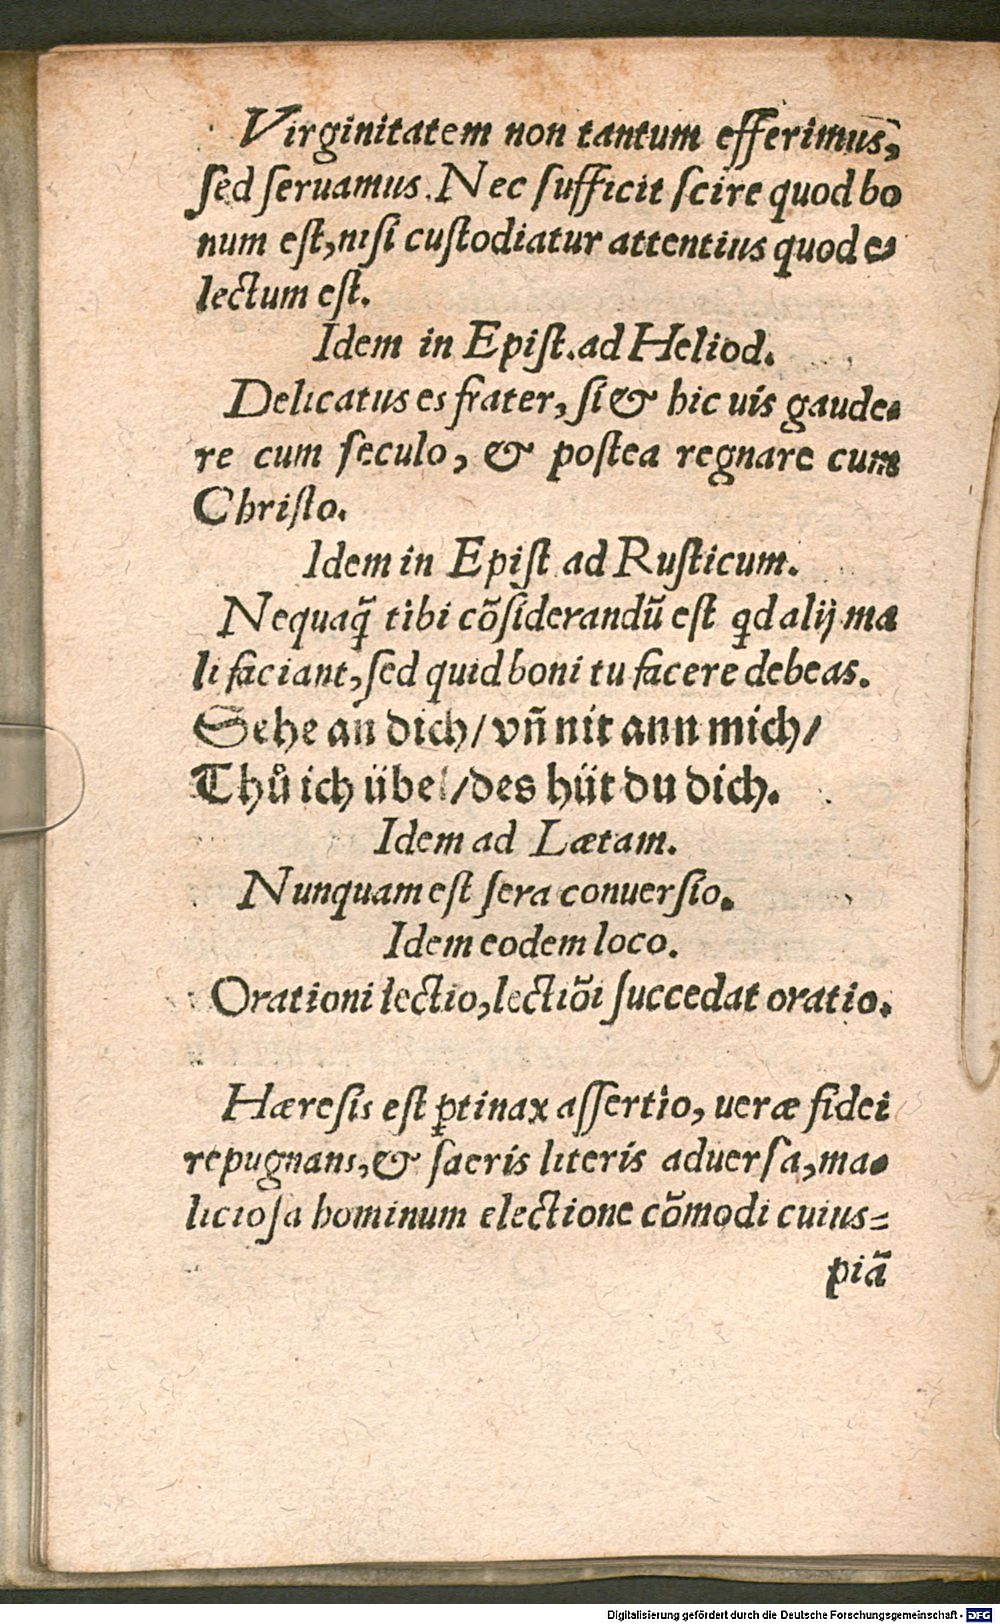 Virginitatem non tantum efferimus,
sed seruamus. Nec sufficit scire quod bo
num est, nisi custodiatur attentius quod e⸗
lectum est.
Idem in Epist. ad Heliod.
Delicatus es frater, si & hic uis gaude⸗
re cum seculo, & postea regnare cum
Christo.
Idem in Epist ad Rusticum.
Nequaq̃ tibi cõsiderandũ est qd alij ma
li faciant, sed quid boni tu facere debeas.
Sehe an dich / vñ nit ann mich /
Thů ich übel / des hüt du dich.
Idem ad Lætam.
Nunquam est sera conuersio.
Idem eodem loco.
Orationi lectio, lectiõi succedat oratio.
Hæresis est ꝑtinax assertio, ueræ fidei
repugnans, & sacris literis aduersa, ma⸗
liciosa hominum electione cõmodi cuius⸗
piã
Digitalisierung gefördert durch die Deutsche Forschungsgemeinschaft - DFG